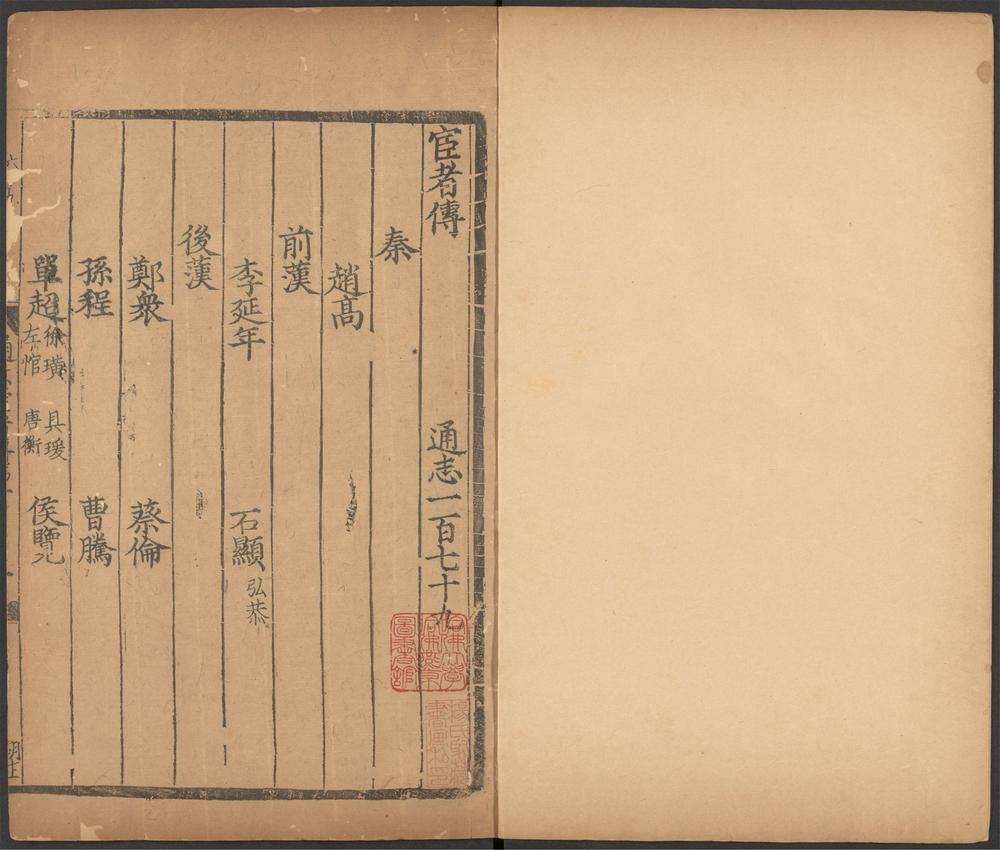 宦者傳 通志一百七十九
秦
趙高
前漢
李延年 石顯 弘恭
後漢
鄭衆 蔡倫
孫程 曹騰
單超 徐璜 具瑗 左悺 唐衡 侯覽